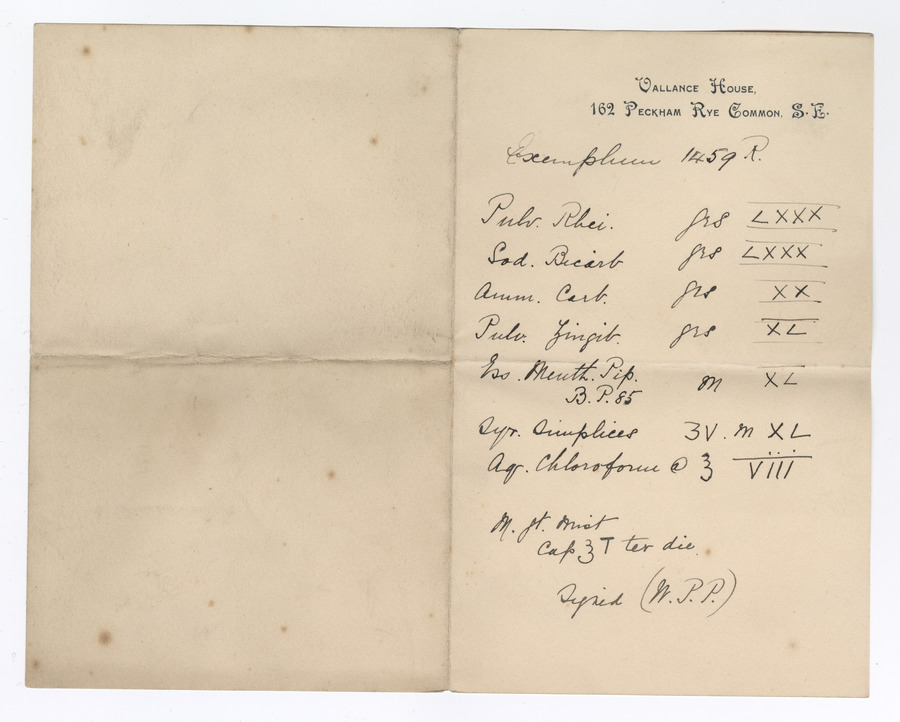 Vallance House,
162 Peckham Rye Common. S.E.
Exemplum 1459 R.
Pulv. Rhei. grs LXXX
Sod. Bicarb grs LXXX
Amm. Carb. grs XX
Pulv. Zingib. grs XL
Ess. Menth. Pip. m XL
B.P. 85
Syr. Simplices ʒV. m XL
Aq. Chloroform @ ℥ VIII
M. ft. Mist
Cap ℥ T ter die.
Signed (W.P.P.)